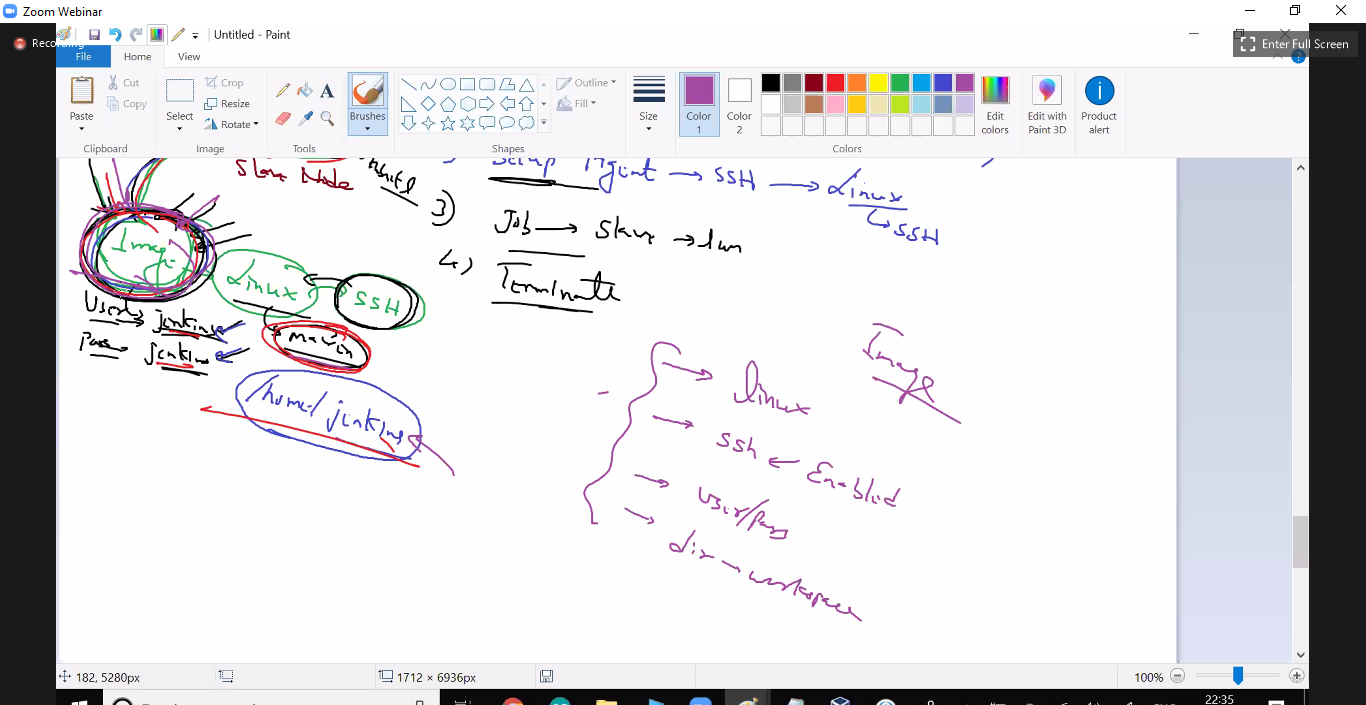 Zoom Webinar
Recording
Untitled - Paint
Enter Full Screen
File Home View
Paste
Cut
Copy
Clipboard
Select
Crop
Resize
Rotate
Image
Tools
Brushes
Shapes
Outline
Fill
Size
Color 1
Color 2
Colors
Edit colors
Edit with Paint 3D
Product alert
Slave Node
Setup → SSH → Linux
SSH
3) Job → Slave → run
4) Terminate
Image
Linux SSH
maven
User → jenkins
Pass → jenkins
/home/jenkins
Image
→ linux
→ ssh ← Enabled
→ User/Pass
→ dir → workspace
182, 5280px
1712 × 6936px
100%
22:35